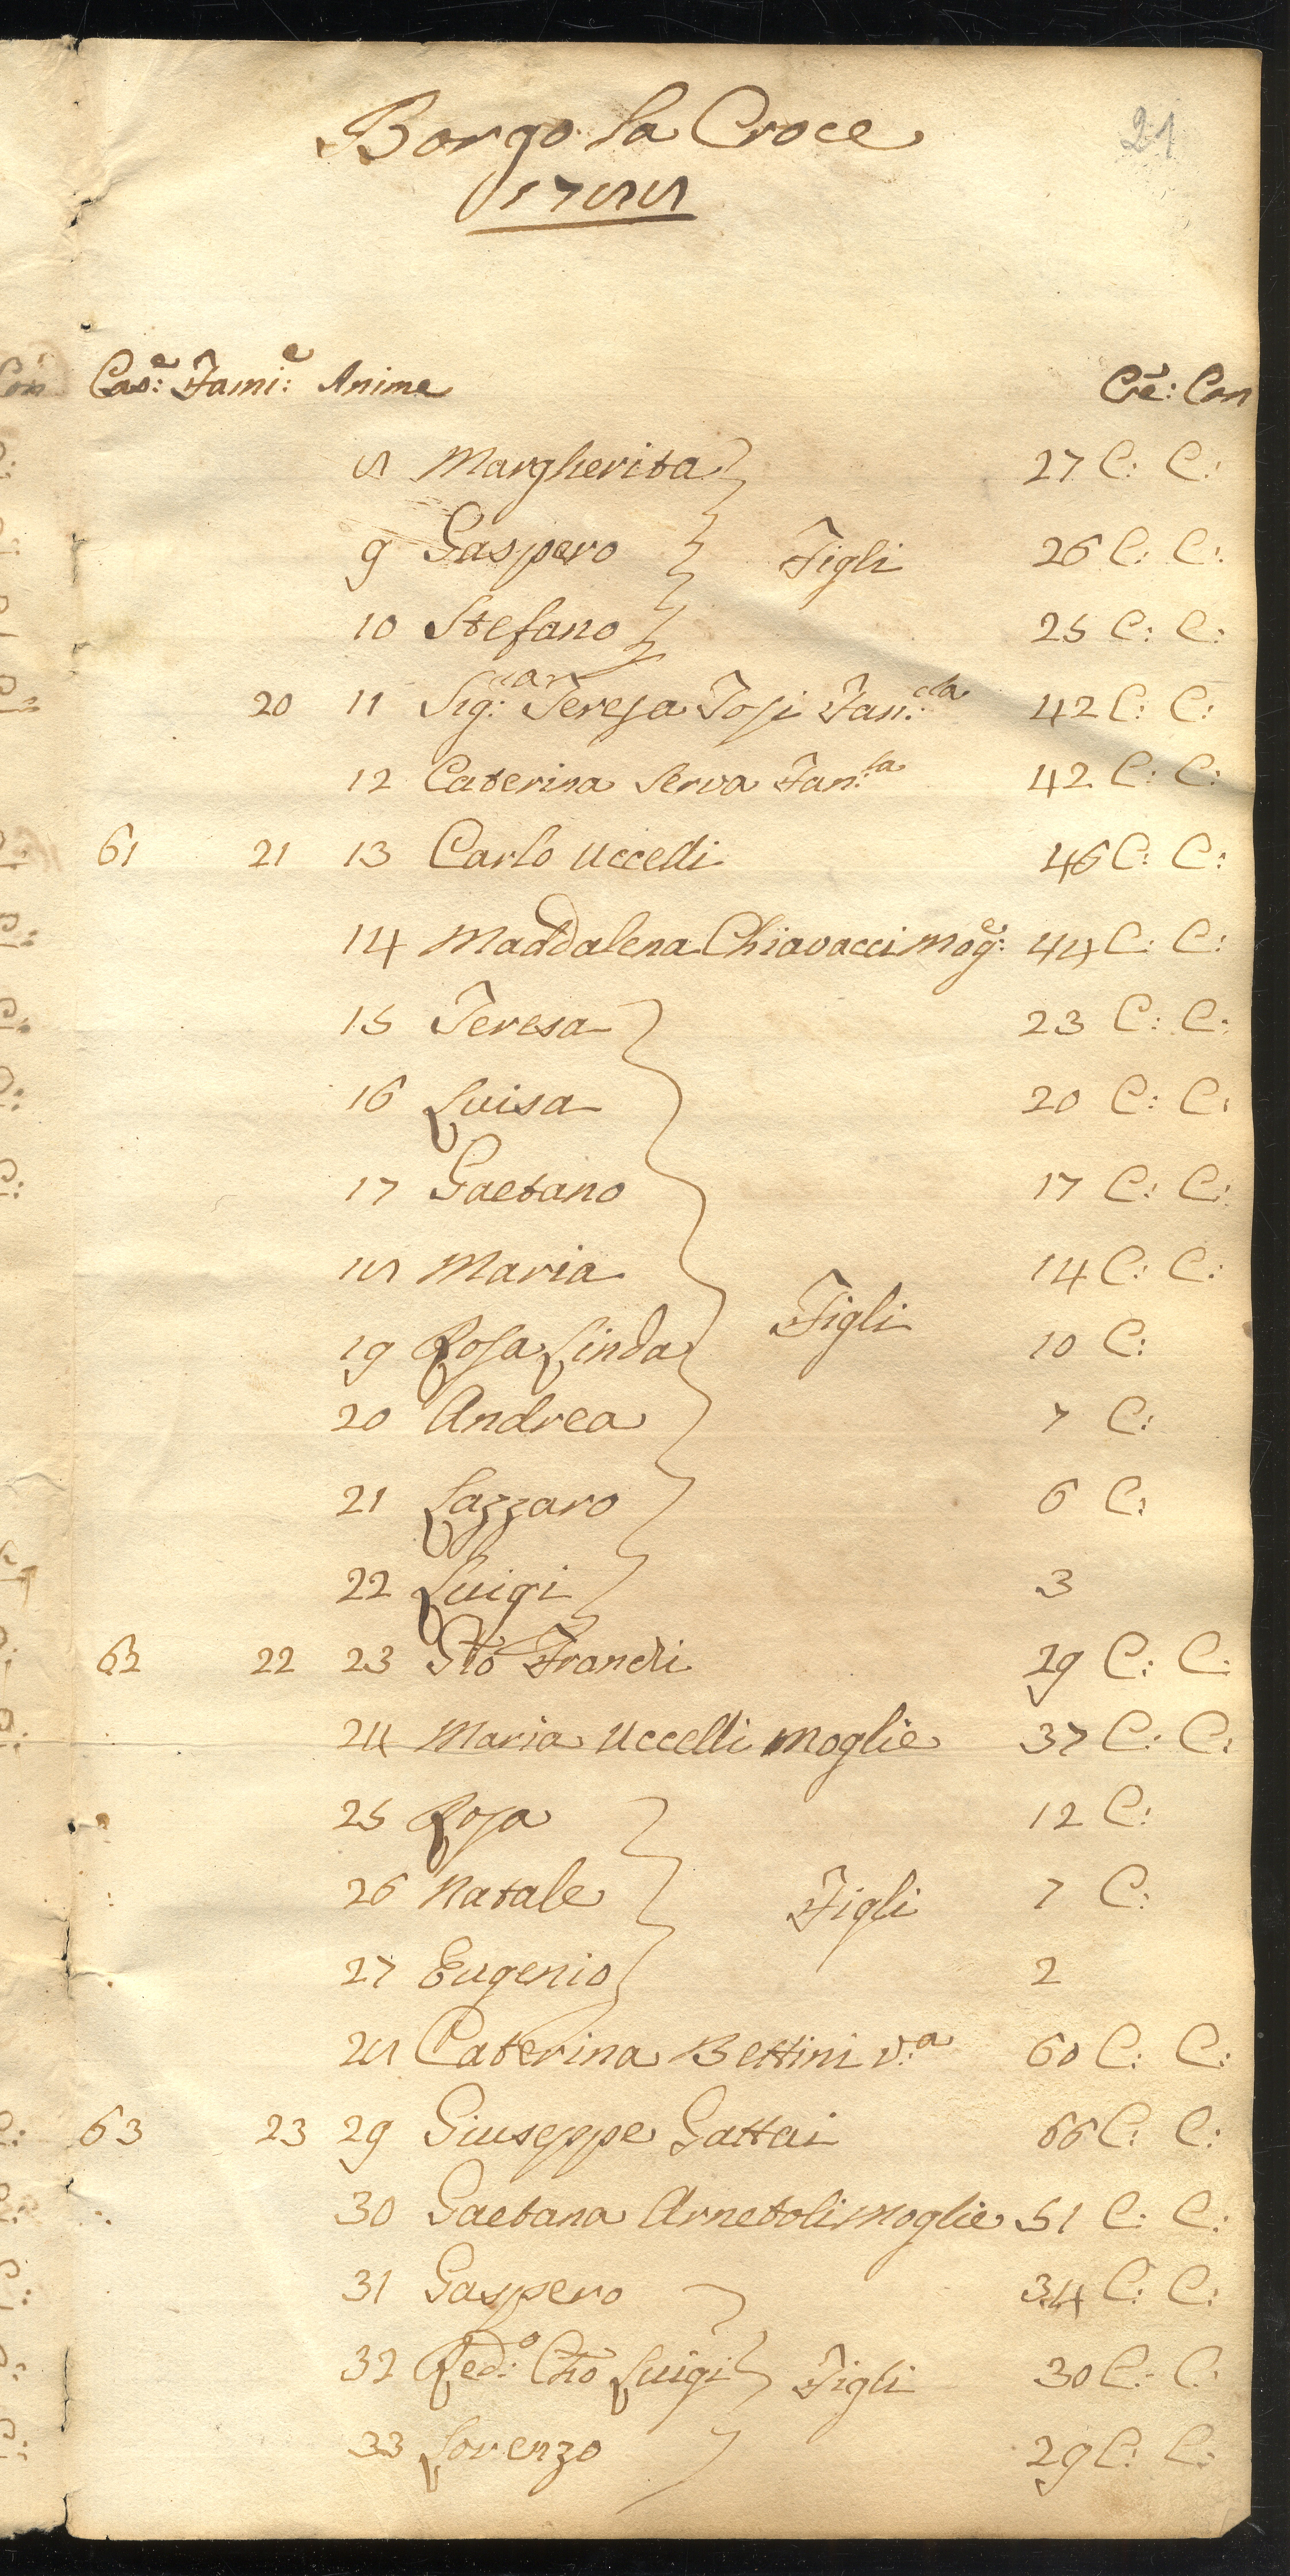 Borgo la Croce
1788
21
Cas:e Fami:e Anime Cre: Con
8 Margherita 27 C: C:
9 Gaspero Figli 26 C: C:
10 Stefano 25 C: C:
20 11 Sig:ra Teresa Tosi Fan:cla 42 C: C:
12 Caterina Serva Fan:la 42 C: C:
61 21 13 Carlo Uccelli 46 C: C:
14 Maddalena Chiavacci Mog:e 44 C: C:
15 Teresa 23 C: C:
16 Luisa 20 C: C:
17 Gaetano 17 C: C:
18 Maria 14 C: C:
Figli
19 Rosa Linda 10 C:
20 Andrea 7 C:
21 Lazzaro 6 C:
22 Luigi 3
62 22 23 Gio 29 C: C:
24 Maria Uccelli Moglie 37 C: C:
25 Rosa 12 C:
26 Natale Figli 7 C:
27 Eugenio 2
28 Caterina Bettini V:a 60 C: C:
63 23 29 Giuseppe Gattai 66 C: C:
30 Gaetana Arnetoli Moglie 51 C: C:
31 Gaspero 34 C: C:
32 Red:o Cho Luigi Figli 30 C: C:
33 Lorenzo 29 C: C: